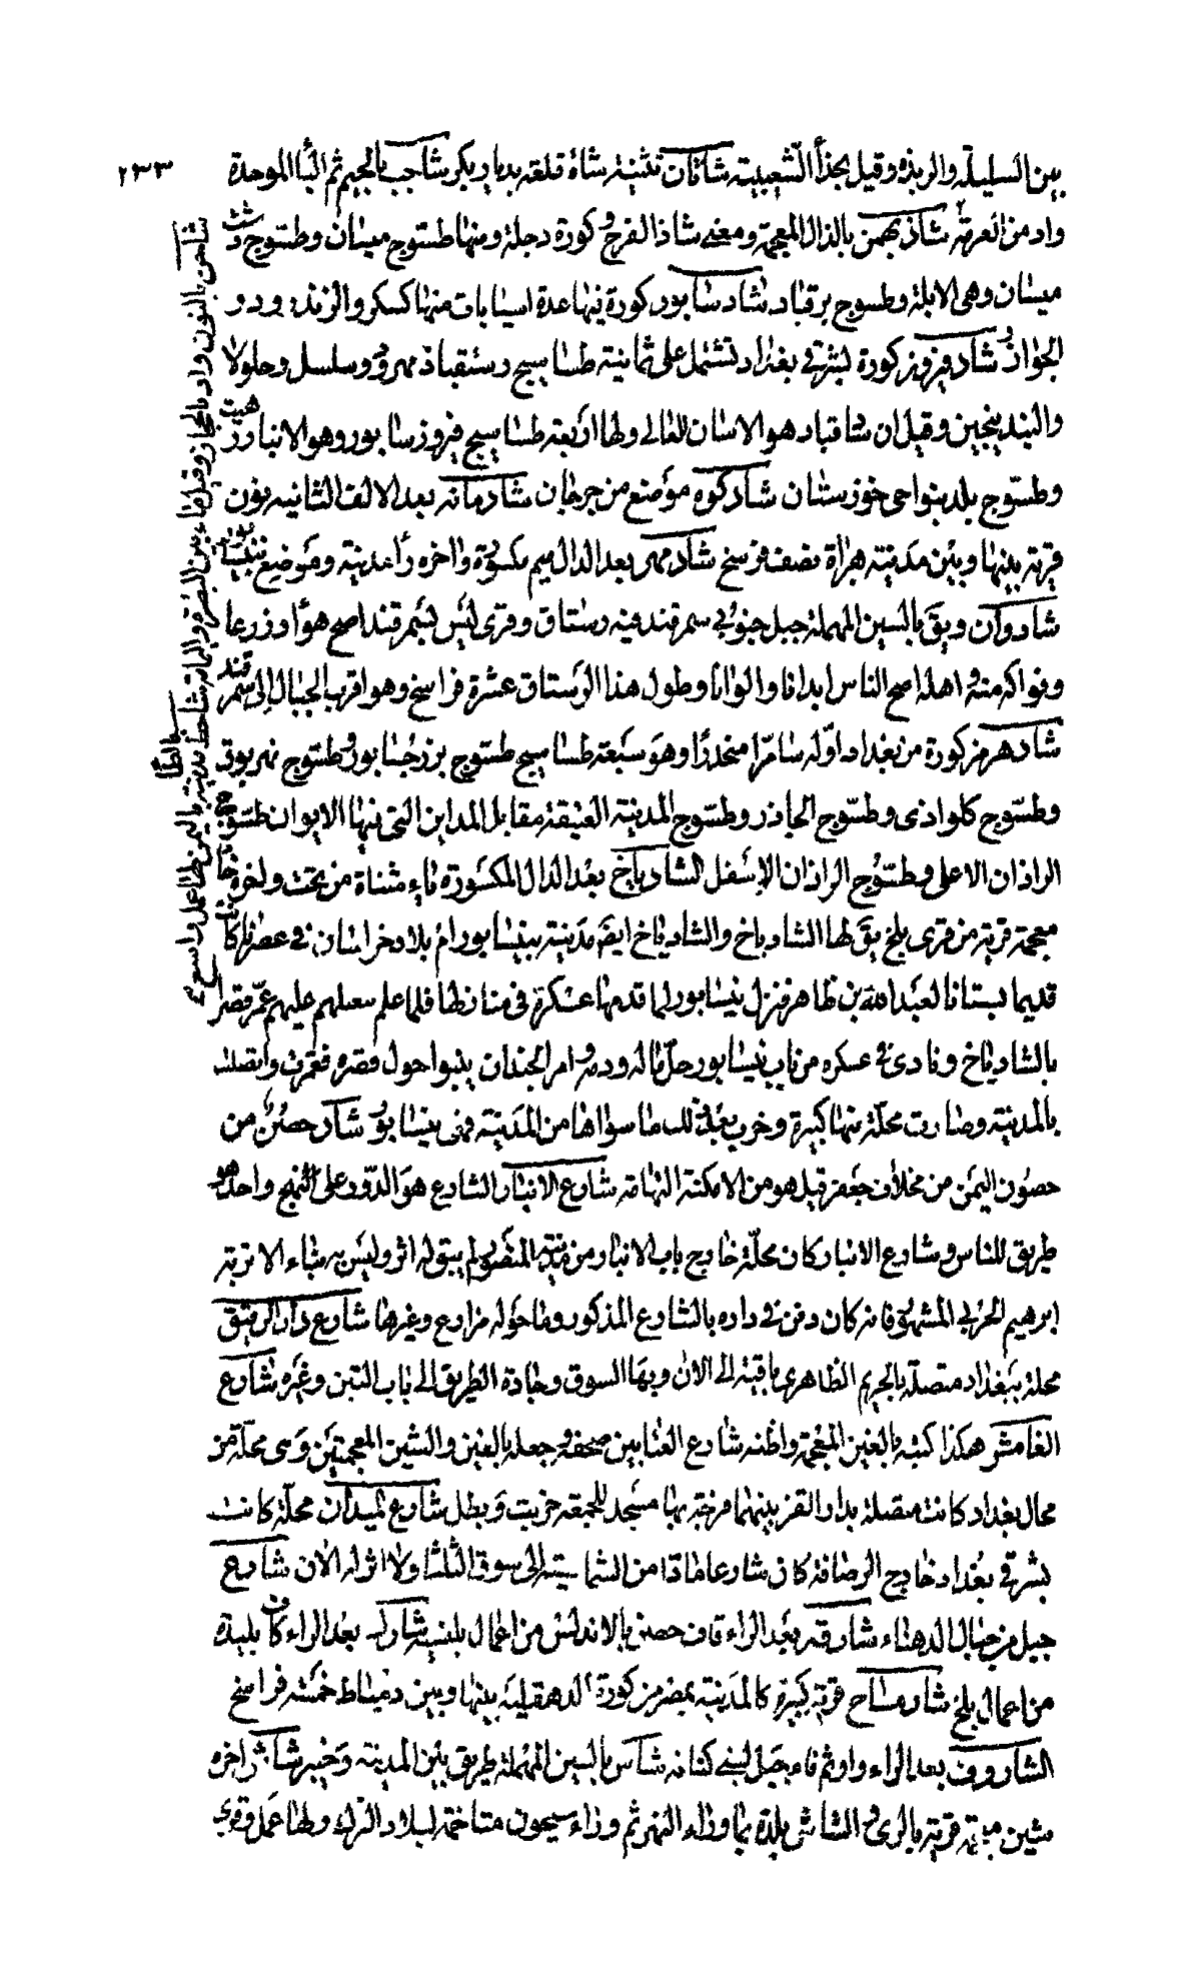 ٢٣٣
بين السليلة والربذه وقيل بحذأ الشعيبية شاتان تثنية شاة قلعة بديار بكر شاجب بالجيم ثم البا الموحدة
واد من العرمة شاذ بهمن بالذال المعجمة ومعنى شاذ الفرح كورة دجلة ومنها طسوج ميسان وطسوج دشت
ميسان وهى الابلة وطسوج برقباد شاد سابور كورة فيها عدة استانات منها كسكر والزند ورد و
الجوازر شاد فيروز كورة بشرقى بغداد تشتمل على ثمانية طساسيج رستقباذ مهرود وسلسل وجلولا
والبندنيجين وقيل ان شاد قباد هو الاستان العالى ولها اربعة طساسيج فيروز سابور وهو الانبار وهيت
وطسوج بلد بنواحى خوزستان شاد كوه موضع من جرجان شاد مانه بعد الالف الثانيه نون
قرية بينها وبين مدينة هراة نصف فرسخ شاد مهر بعد الدال ميم مكسورة واخره را مدينة وموضع بنيسابور
شاد وان ويق بالسين المهملة جبل جنوبى سمرقند فيه رستاق وقرى ليس بسمرقند اصح هوأ وزرعا
وفواكه منه واهله اصح الناس ابدانا والوانا وطول هذا الرستاق عشرة فراسخ وهو اقرب الجبال الى سمرقند
شاد هرمز كورة من بغداد اوله سامرا منحدرا وهو سبعة طساسيج طسوج بزرجسابور وطسوج نهر بوق
وطسوج كلواذى وطسوج الجاذر وطسوج المدينة العتيقة مقابل المداين التى فيها الايوان طسوج
الراذان الاعلى وطسوج الراذان الاسفل الشاد ياخ بعد الدال المكسورة ياء مثناة من تحت واخره خا
معجمة قرية من قرى بلخ يق لها الشاد ياخ والشاد ياخ ايضا مدينة بنيسابور ام بلاد خراسان فى عصرنا كانت
قديما بستانا لعبد الله بن طاهر فنزل نيسابور لما قدمها عسكره فى منازلها فلما علم عليهم عمر قصرا
بالشاد ياخ ونادى فى عسكره من بات بنيسابور حل ماله ودمه وامر الجند ان يبنوا حول قصره فعمرت واتصلت
بالمدينة وصارت محلة منها كبيرة وخرب بعد ذلك ما سواها من المدينة فهى نيسابور شاد حصن من
حصون اليمن من مخلاف جعفر قيل هو من الامكنة التهامه شارع الانبار الشارع هو الدور على النهج واحد هو
طريق للناس وشارع الانبار كان محلة خارج باب الانبار من مدينة المنصور لم يبق له اثر وليس به بناء الا تربة
ابرهيم الحربى المشهور فانه كان دفن فى داره بالشارع المذكور وما حوله مزارع وغيرها شارع دار الرقيق
محلة ببغداد متصلة بالحريم الظاهرى باقية الى الان وبها السوق وجادة الطريق الى باب التبن وغيره شارع
الغامش هكذا كتبه بالغين المعجمة واظنه شارع العتابين صحفه وجعله بالغين والشين المعجمتين وهى محلة من
محال بغداد كانت متصلة بدار القز بينهما فرجة بها مسجد للجمعة خربت وبطل شارع الميدان محلة كانت
بشرقى بغداد خارج الرصافة كان شارعا مادا من الشماسية الى سوق الثلثا ولا اثر له الان شارع
جبل من جبال الدهناء شارقه بعد الراء قاف حصن بالاندلس من اعمال بلنسية شارك بعد الراء كاف بليدة
من اعمال بلخ شار مساح قرية كبيرة كالمدينة بمصر من كورة الدهقلية بينها وبين دمياط خمسة فراسخ
الشاروف بعد الراء واو ثم فاء جبل لبنى كنانه شاس بالسين المهملة طريق بين المدينة وخيبر شاش اخره
شين مبهمة قرية بالرى والشاش بلدة بما وراء النهر ثم وراء سيحون متاخمة لبلاد الترك ولها عمل وقرى
شاحن بالنون واد بالحجاز وقيل ماء بين البصره واليمامة شاحط مدينة باليمن لها عمل واسع